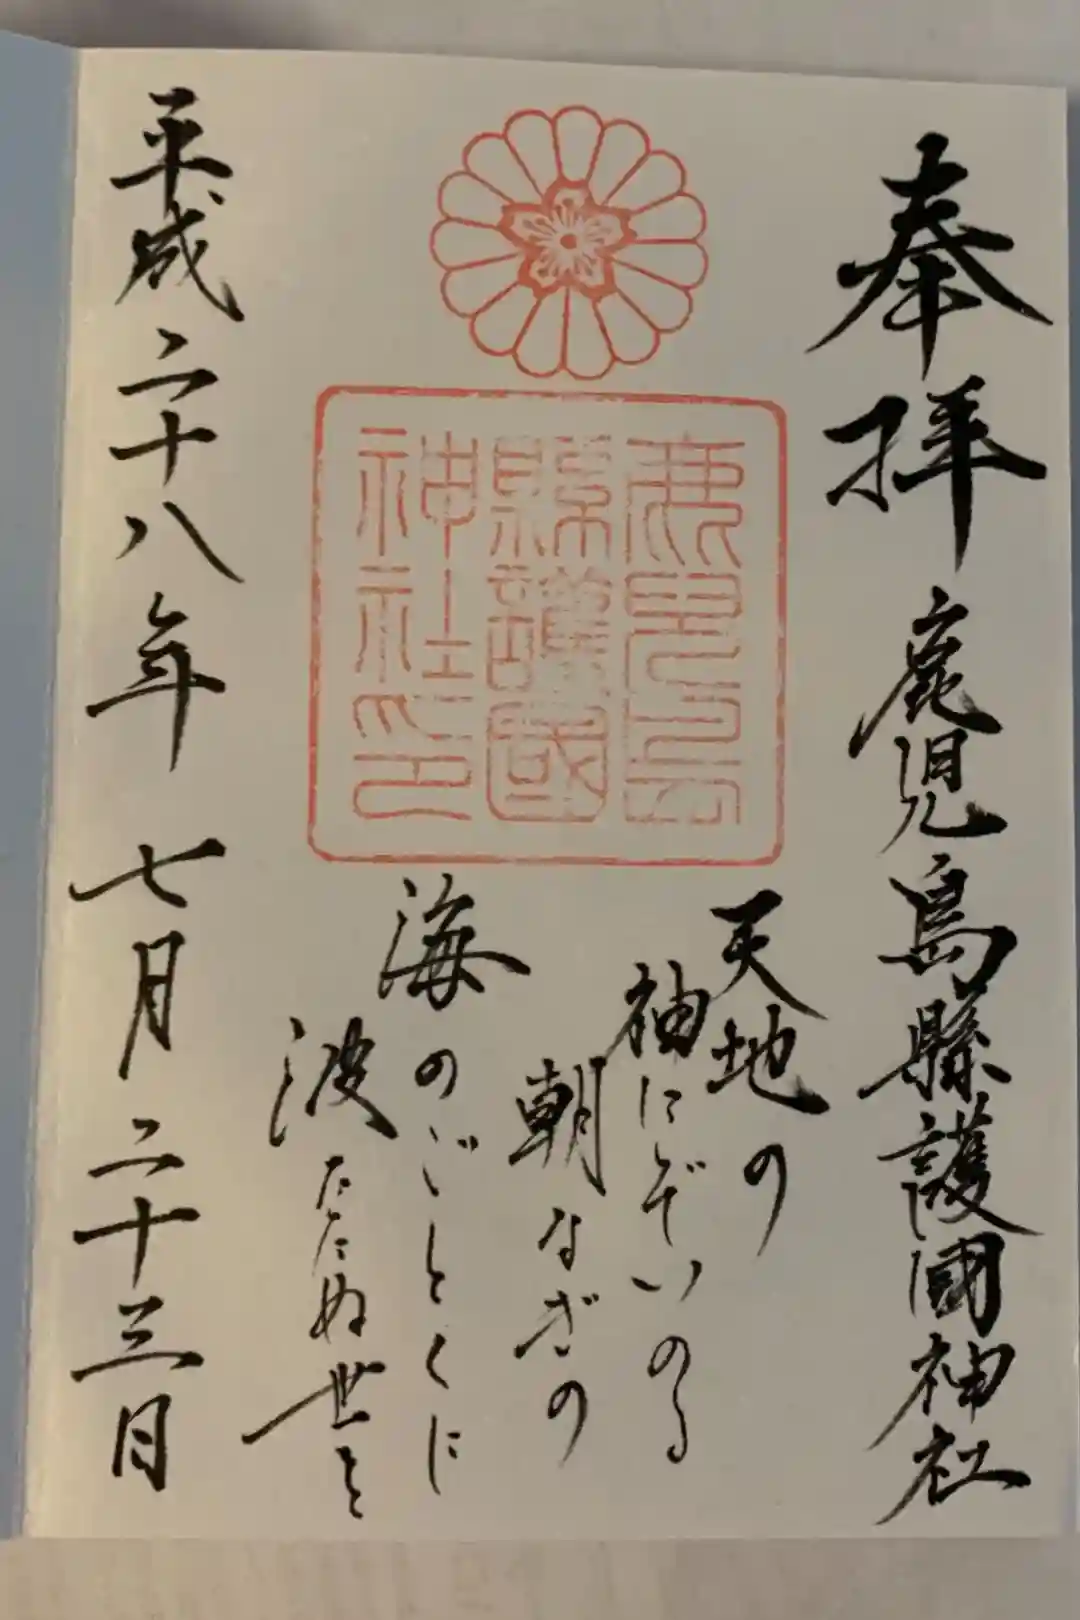 奉拝
鹿児島縣護國神社
鹿児島
縣護國
神社印
天地の
神にぞいのる
朝なぎの
海のごとくに
波たたぬ世を
平成二十八年七月二十三日